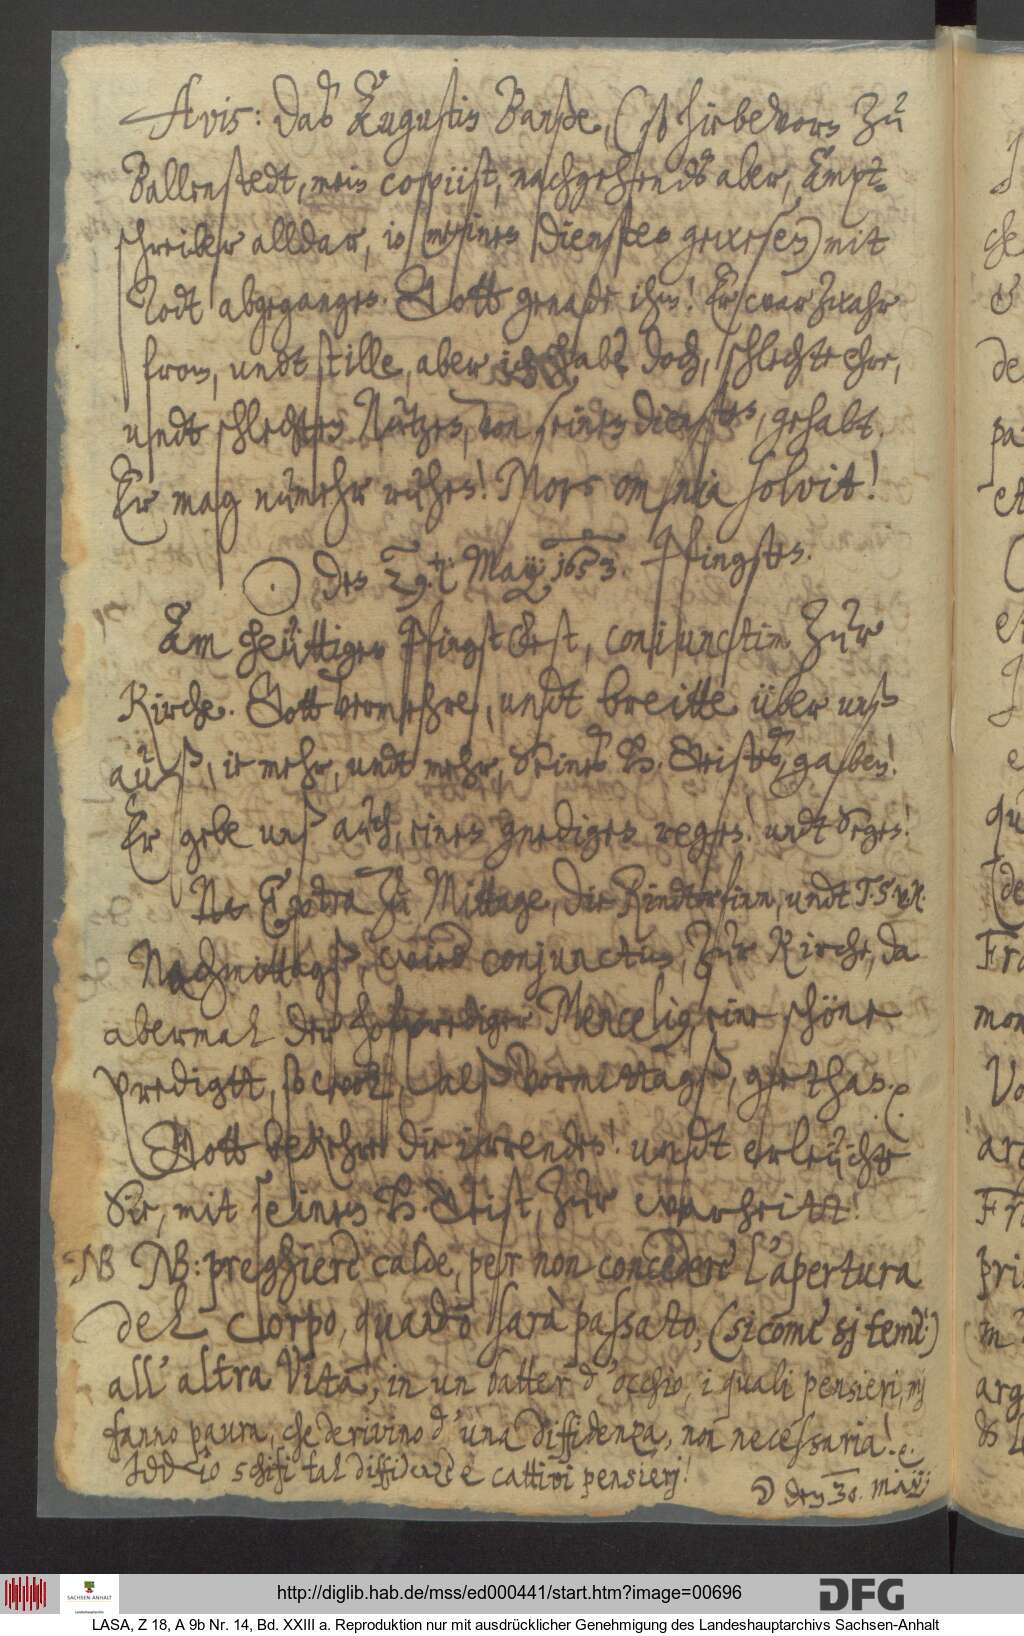 Avis: das Augustin Banse, (so hirbevorn zu
Ballenstedt, mein copiist, nachgehends aber, Ampt-
schreiber alldar, in meinen diensten gewesen) mit
Todt abgegangen. Gott genade ihm! Er war zwahr
from, undt stille, aber ich habe doch, schlechte ehre,
undt schlechten Nutzen, von seinen diensten, gehabt.
Er mag nunmehr ruhen! Mors omnia solvit!
☉ den 29. May: 1653. Pfingsten.
Am heüttigen Pfingstfest, conjunctim zur
Kirche. Gott vermehre, undt breitte über unß
auß, ie mehr, undt mehr, Seines H. Geistes, gaben!
Er gebe unß auch, einen gnedigen regen! undt Segen!
Extra zu Mittage, die Rindtorfinn, undt T. S. v. R.
Nachmittagß, wird conjunctim, zur Kirche, da
abermal der hofprediger Menzelius, eine schöne
predigtt, so wol, alß vormittagß, gethan. e
Gott bekehre die irrenden! undt erleüchte
Sie, mit seinem H. Geist, zur warheitt!
NB NB: preghiere calde, per non concedere l'apertura
del corpo, quando sarà passato, (sicome si teme)
all' altra Vita, in un batter d'occhio, i quali pensieri, mj
fanno paura, che derivino d'una diffidenza, non necessaria! e.
Iddio schifi tal diffidare e cattivi pensierj!
☽ den 30. Mayj
J
de
pa
et
qu
(de
Fra
mon
Vo
arg
Fra
pri
m
arg
http://diglib.hab.de/mss/ed000441/start.htm?image=00696
SACHSEN-ANHALT
Landeshauptarchiv
DFG
LASA, Z 18, A 9b Nr. 14, Bd. XXIII a. Reproduktion nur mit ausdrücklicher Genehmigung des Landeshauptarchivs Sachsen-Anhalt